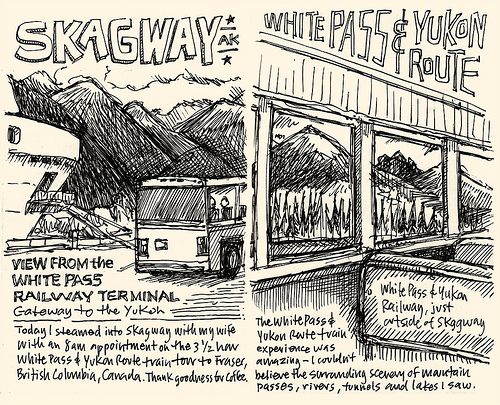 SKAGWAY AK
VIEW FROM the
WHITE PASS
RAILWAY TERMINAL
Gateway to the Yukon
Today I steamed into Skagway with my wife
with an 8am appointment on the 3 1/2 hour
White Pass & Yukon Route train tour to Fraser,
British Columbia, Canada. Thank goodness for coffee.
WHITE PASS & YUKON
ROUTE
White Pass & Yukon
Railway, just
outside of Skagway
The White Pass &
Yukon Route train
experience was
amazing – I couldn't
believe the surrounding scenery of mountain
passes, rivers, tunnels and lakes I saw.